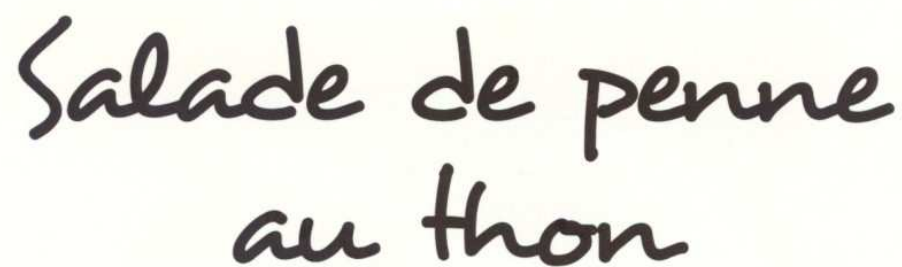 Salade de penne
au thon